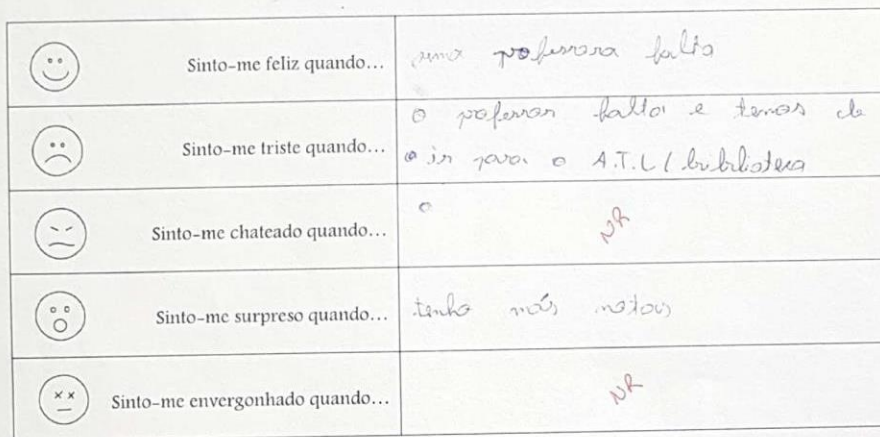 Sinto-me feliz quando... uma professora falta
Sinto-me triste quando... o professor falta e temos de
o ir para o A.T.L / biblioteca
Sinto-me chateado quando... o
NR
Sinto-me surpreso quando... tenho más notas
Sinto-me envergonhado quando... NR